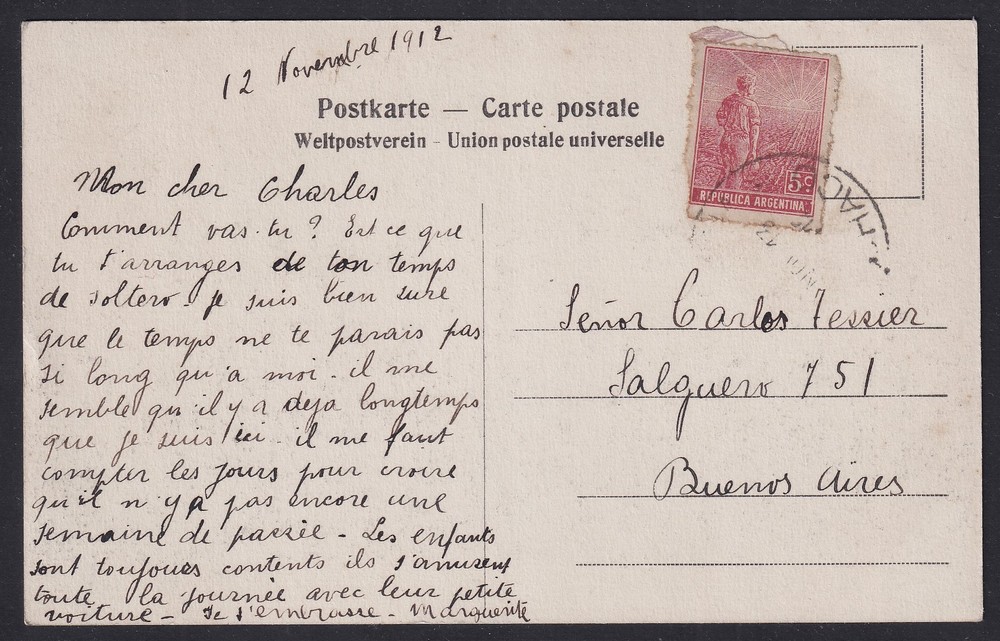 12 Novembre 1912
Postkarte — Carte postale
Weltpostverein - Union postale universelle
5c
REPUBLICA ARGENTINA
Mon cher Charles
Comment vas-tu ? Est ce que
tu t'arranges de ton temps
de soltero. je suis bien sure
que le temps ne te parais pas
si long qu'a moi. il me
semble qu'il y a deja longtemps
que je suis ici. il me faut
compter les jours pour croire
qu'il n'y a pas encore une
semaine de passée - Les enfants
sont toujours contents ils s'amusent
toute la journée avec leur petite
voiture - Je t'embrasse - Marguerite
Señor Carlos Tessier
Salguero 751
Buenos Aires